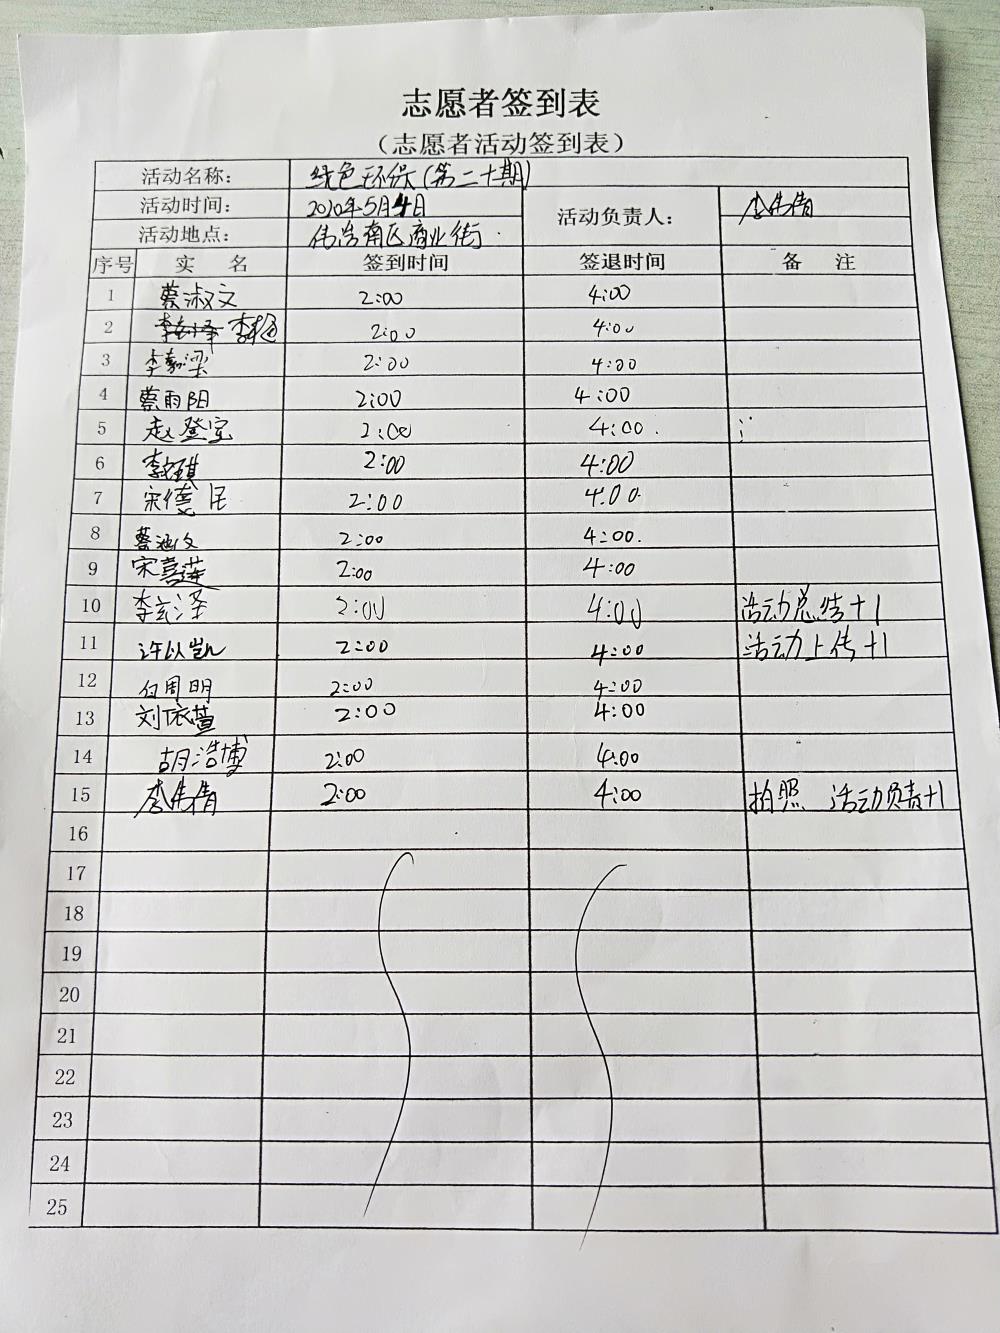 志愿者签到表
（志愿者活动签到表）
活动名称： 绿色环保（第二十期）
活动时间： 2020年5月4日 活动负责人： 李伟倩
活动地点： 伟浩南区商业街
序号 实 名 签到时间 签退时间 备 注
1 蔡淑文 2:00 4:00
2 2:00 4:00
3 李嘉梁 2:00 4:00
4 蔡雨阳 2:00 4:00
5 赵登宝 2:00 4:00
6 2:00 4:00
7 宋德民 2:00 4:00
8 蔡涵文 2:00 4:00
9 宋喜莲 2:00 4:00
10 李玄泽 2:00 4:00 活动总结+1
11 许以凯 2:00 4:00 活动上传+1
12 白周明 2:00 4:00
13 刘依萱 2:00 4:00
14 胡浩博 2:00 4:00
15 李伟倩 2:00 4:00 拍照 活动负责+1
16
17
18
19
20
21
22
23
24
25